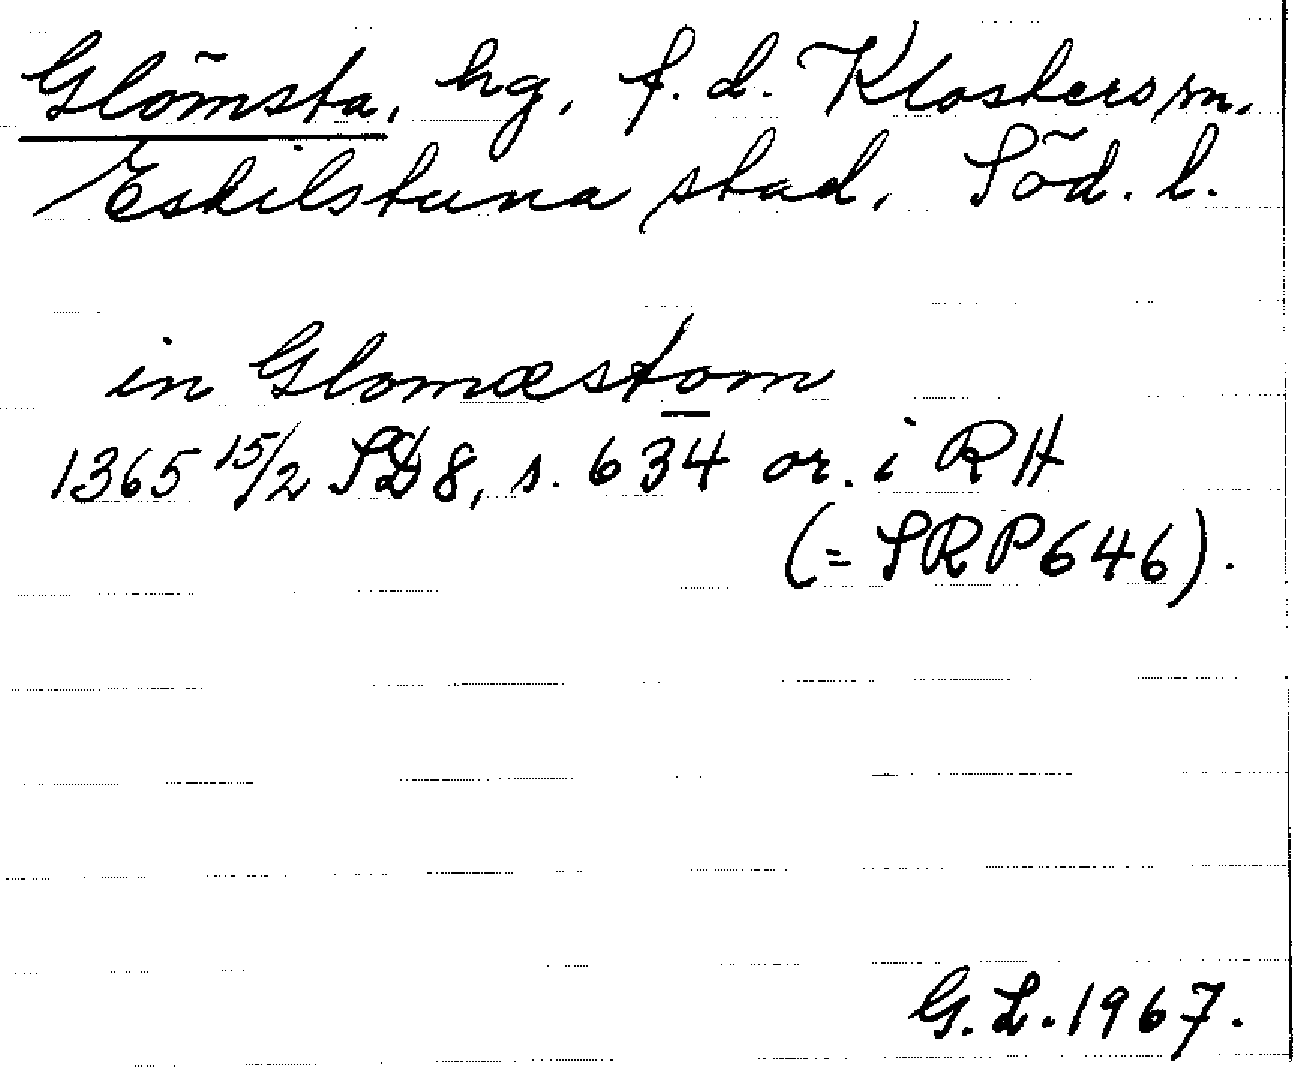 Glömsta, hg, f. d. Klosters sn.
Eskilstuna stad, Söd. l.
in Glomæstom
1365 15/2 SD8, s. 634 or. i RH
(= SRP646).
G. L. 1967.